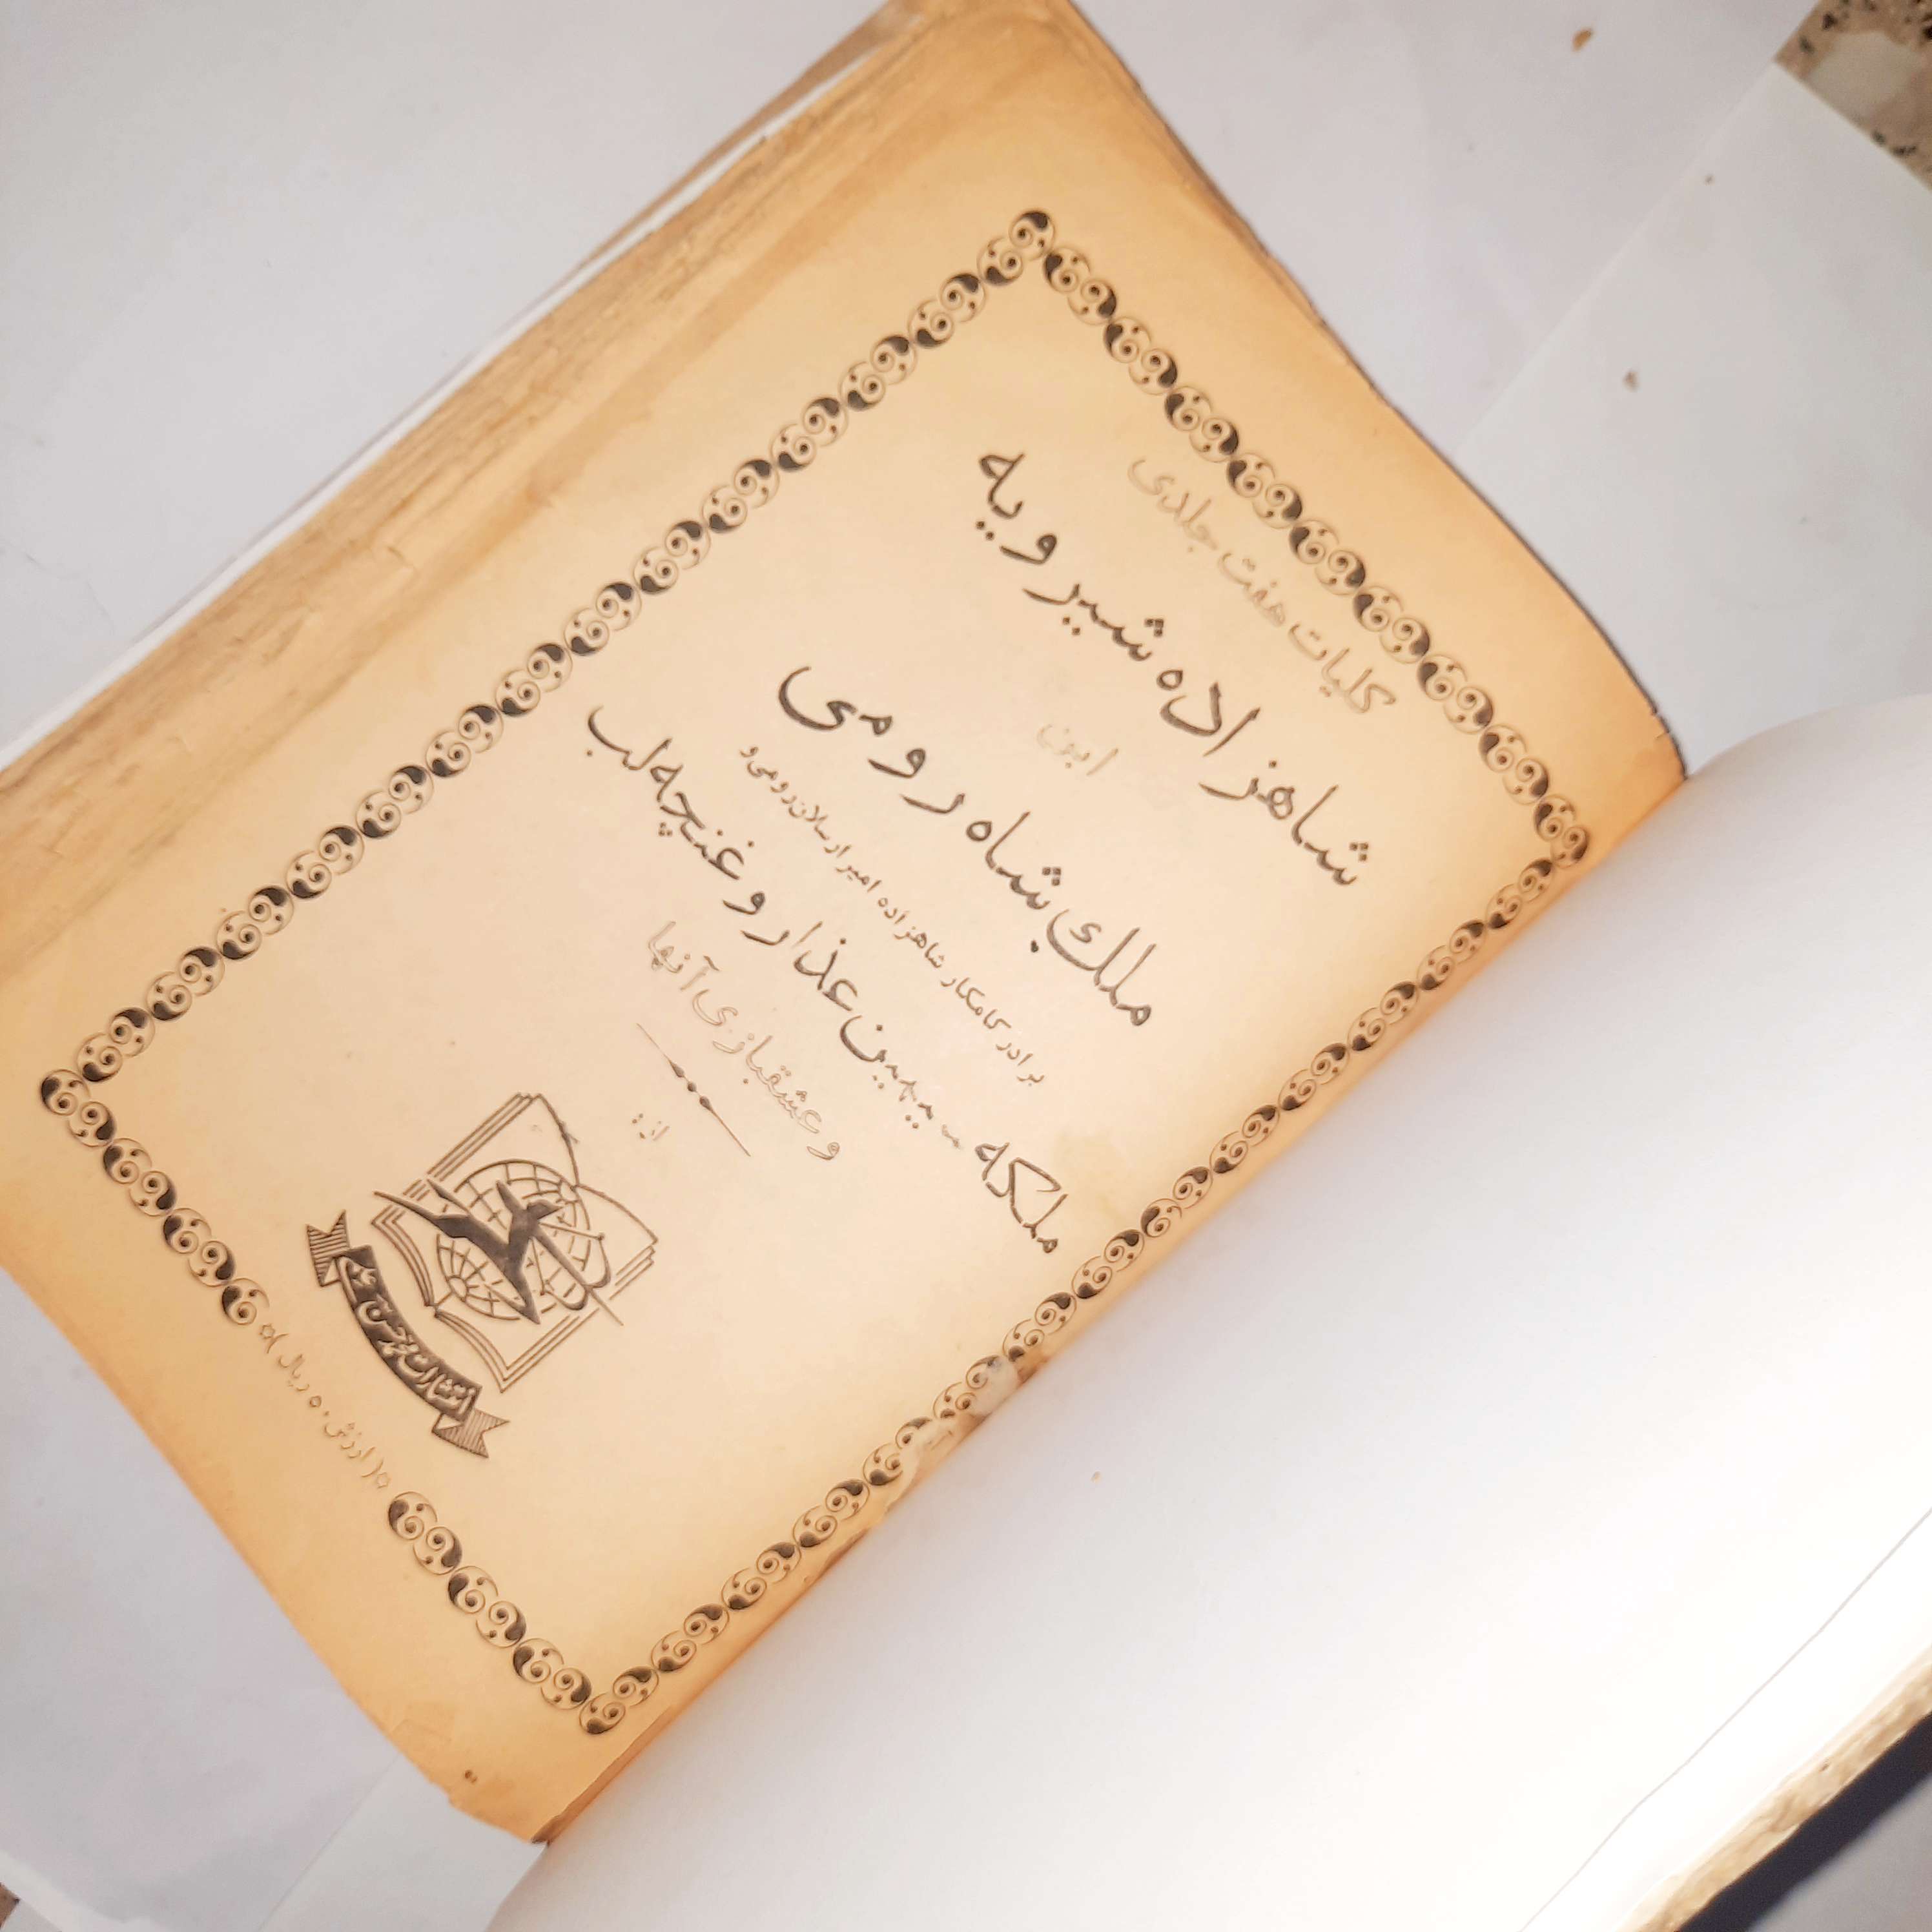 کلیات هفت جلدی
شاهزاده شیرویه
ابن
ملك‌شاه رومی
برادر کامکار شاهزاده امیر ارسلان رومی و
ملکه سیمین عذار و غنچه لب
و عشقبازی آنها
از:
انتشارات محمد حسن علمی
(ارزش ۵۰ ریال)